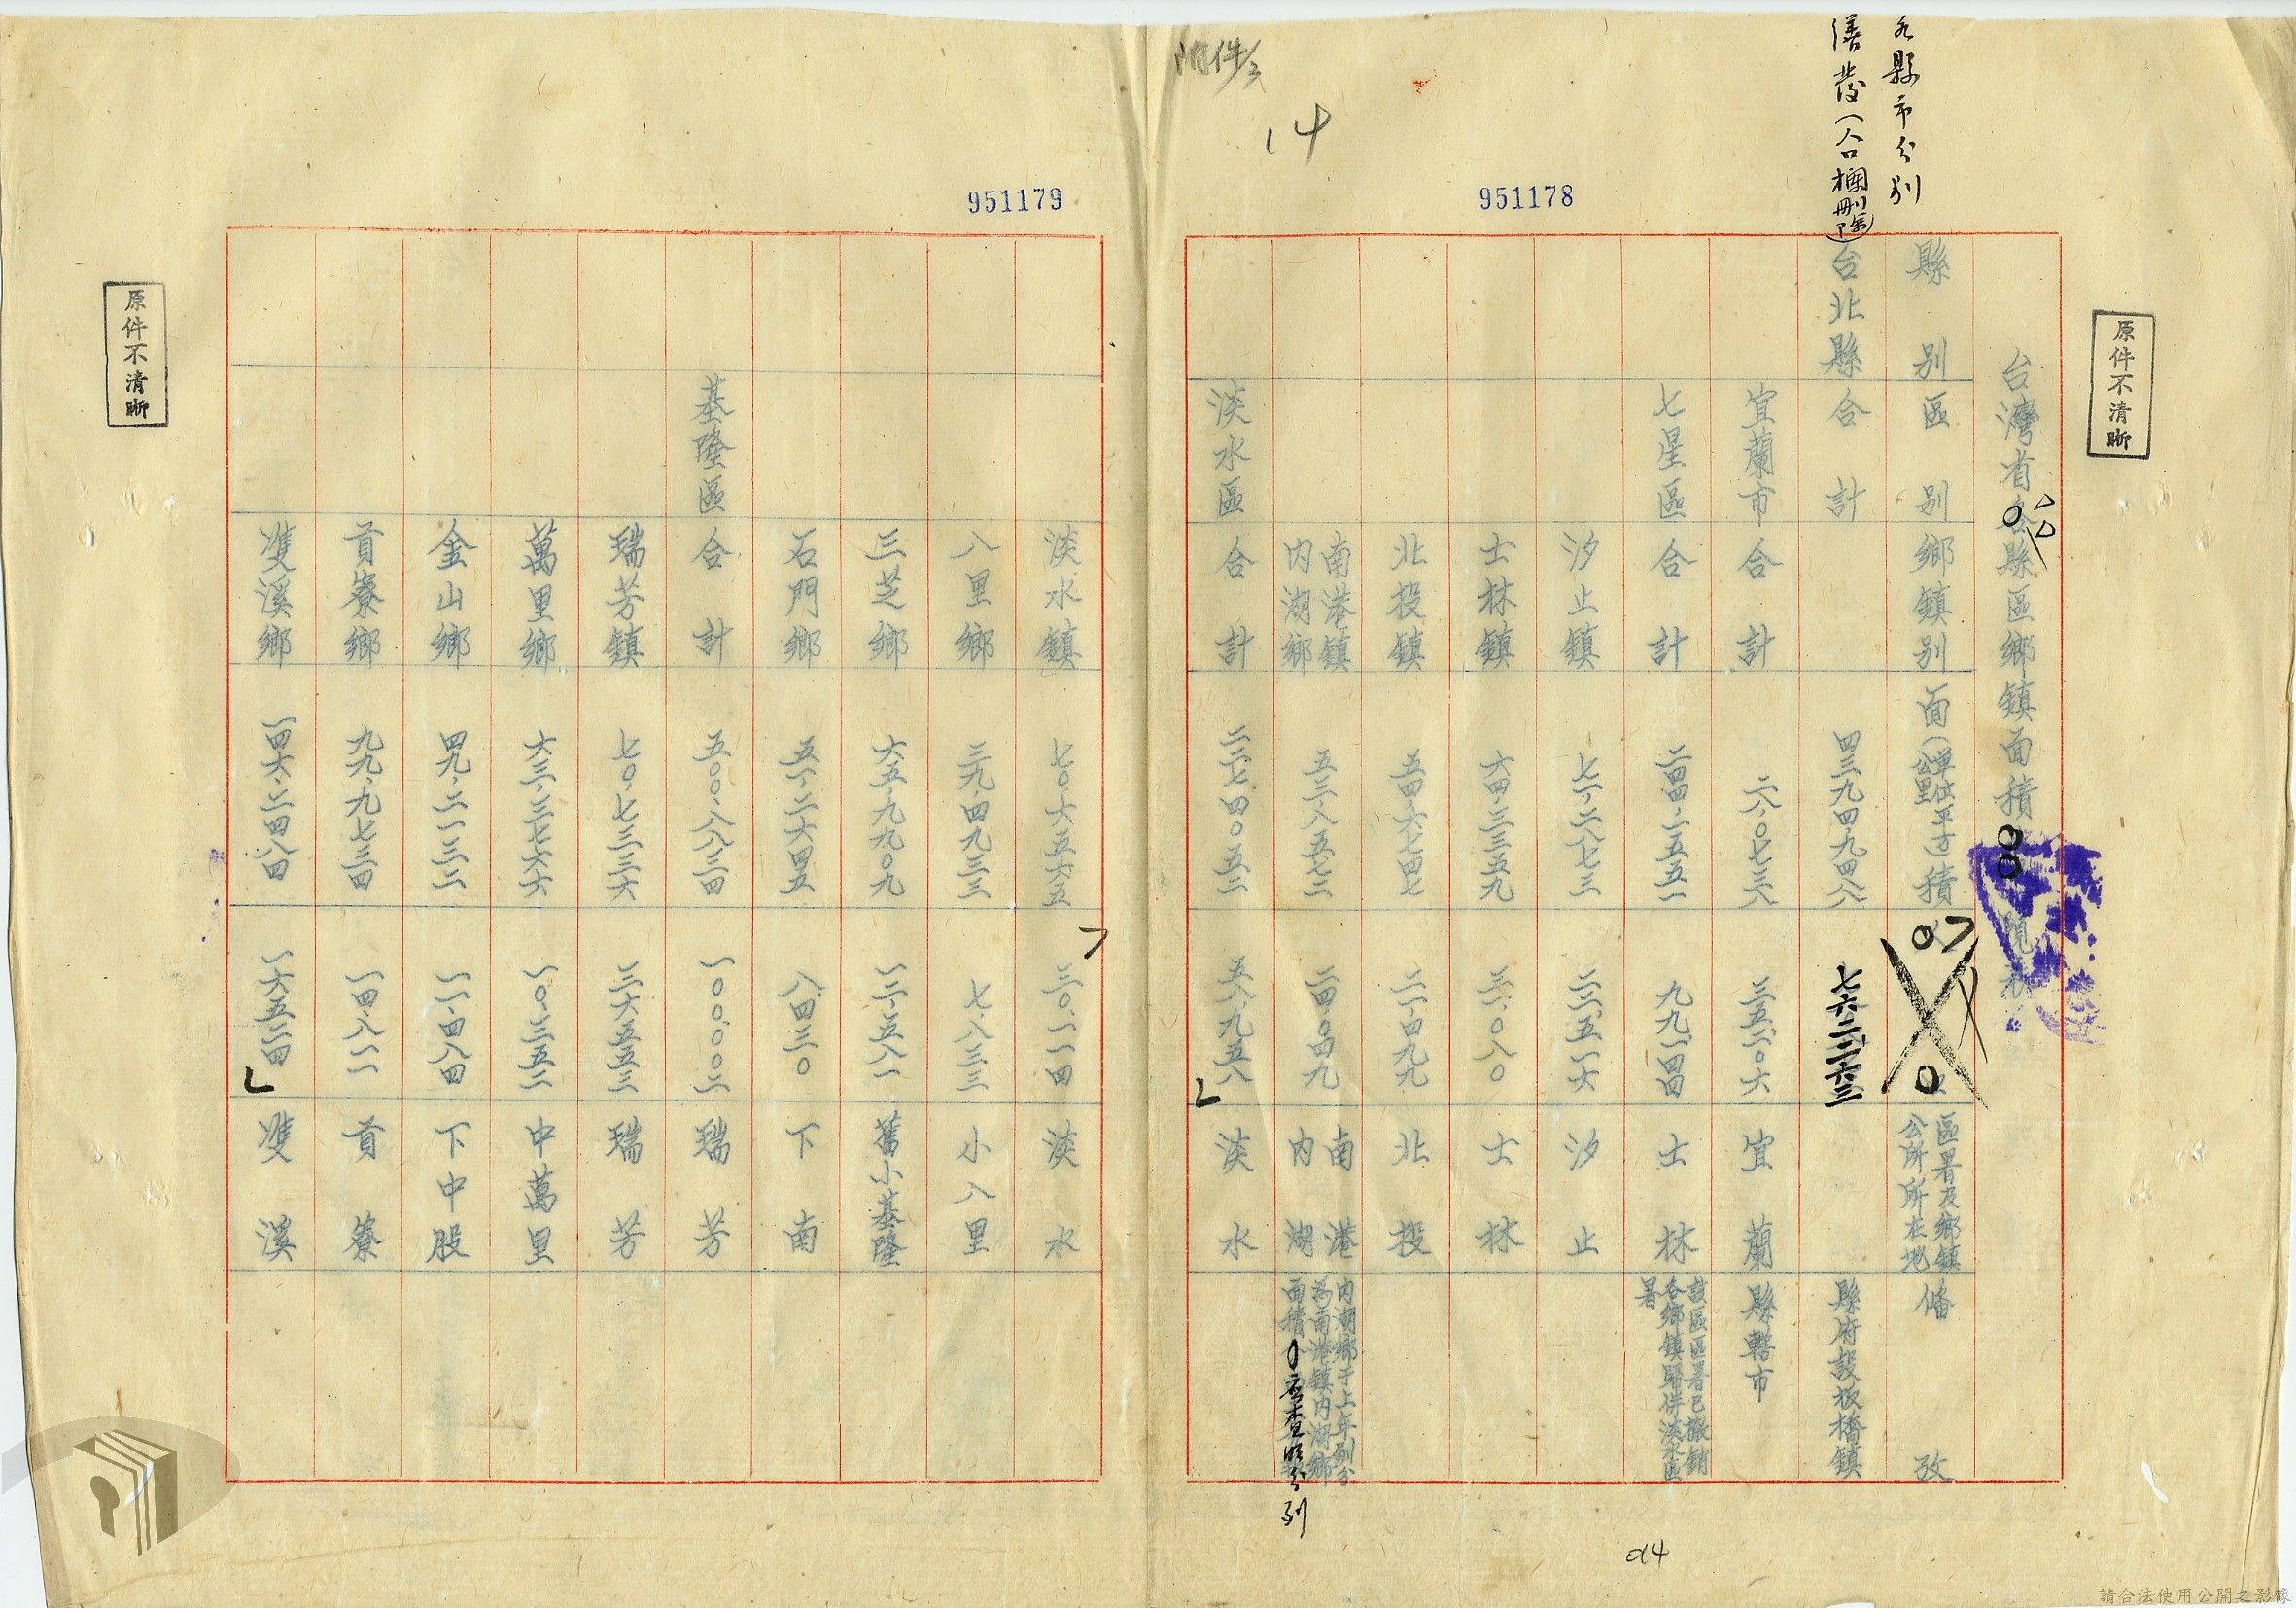 附件
14
951178
951179
各縣市分別
繕發（人口欄刪除）
原件不清晰
台灣省各縣區鄉鎮面積
縣別 區別 鄉鎮別 面積（單位平方公里） 區署及鄉鎮公所所在地 備攷
台北縣 合計 四三九四九四八 七六二二六三 縣府設板橋鎮
宜蘭市 合計 宜蘭 縣轄市
七星區 合計 二四四.二五五一 士林 該區區署已撤銷各鄉鎮歸併淡水區署
汐止鎮 七一.二八七三 汐止
士林鎮 六四.三三五九 三一.〇八〇 士林
北投鎮 五四.六七四七 二一.四九九 北投
南港鎮 內湖鄉 五三.八五七二 二四.〇四九 南港 內湖 內湖鄉于上年劃分為南港鎮內湖鄉面積 應查明分列
淡水區 合計 二二七四〇五二 五八.九五八 淡水
淡水鎮 七〇.六五六五 三〇.一一四 淡水
八里鄉 三九.四九三三 七.八三三 小八里
三芝鄉 六五.九九〇九 一二.五八一 舊小基隆
石門鄉 五一.二六四五 八.四三〇 下南
基隆區 合計 五〇〇.八八三四 一〇〇.〇〇二 瑞芳
瑞芳鎮 七〇.七三三六 三六五五三 瑞芳
萬里鄉 六三.三七六六 一〇.三五二 中萬里
金山鄉 四九.二一三二 一一.四八四 下中股
貢寮鄉 九九.九七三四 一四.八一一 貢寮
雙溪鄉 一四六.二四八四 一六五二四 雙溪
原件不清晰
請合法使用公開之影像